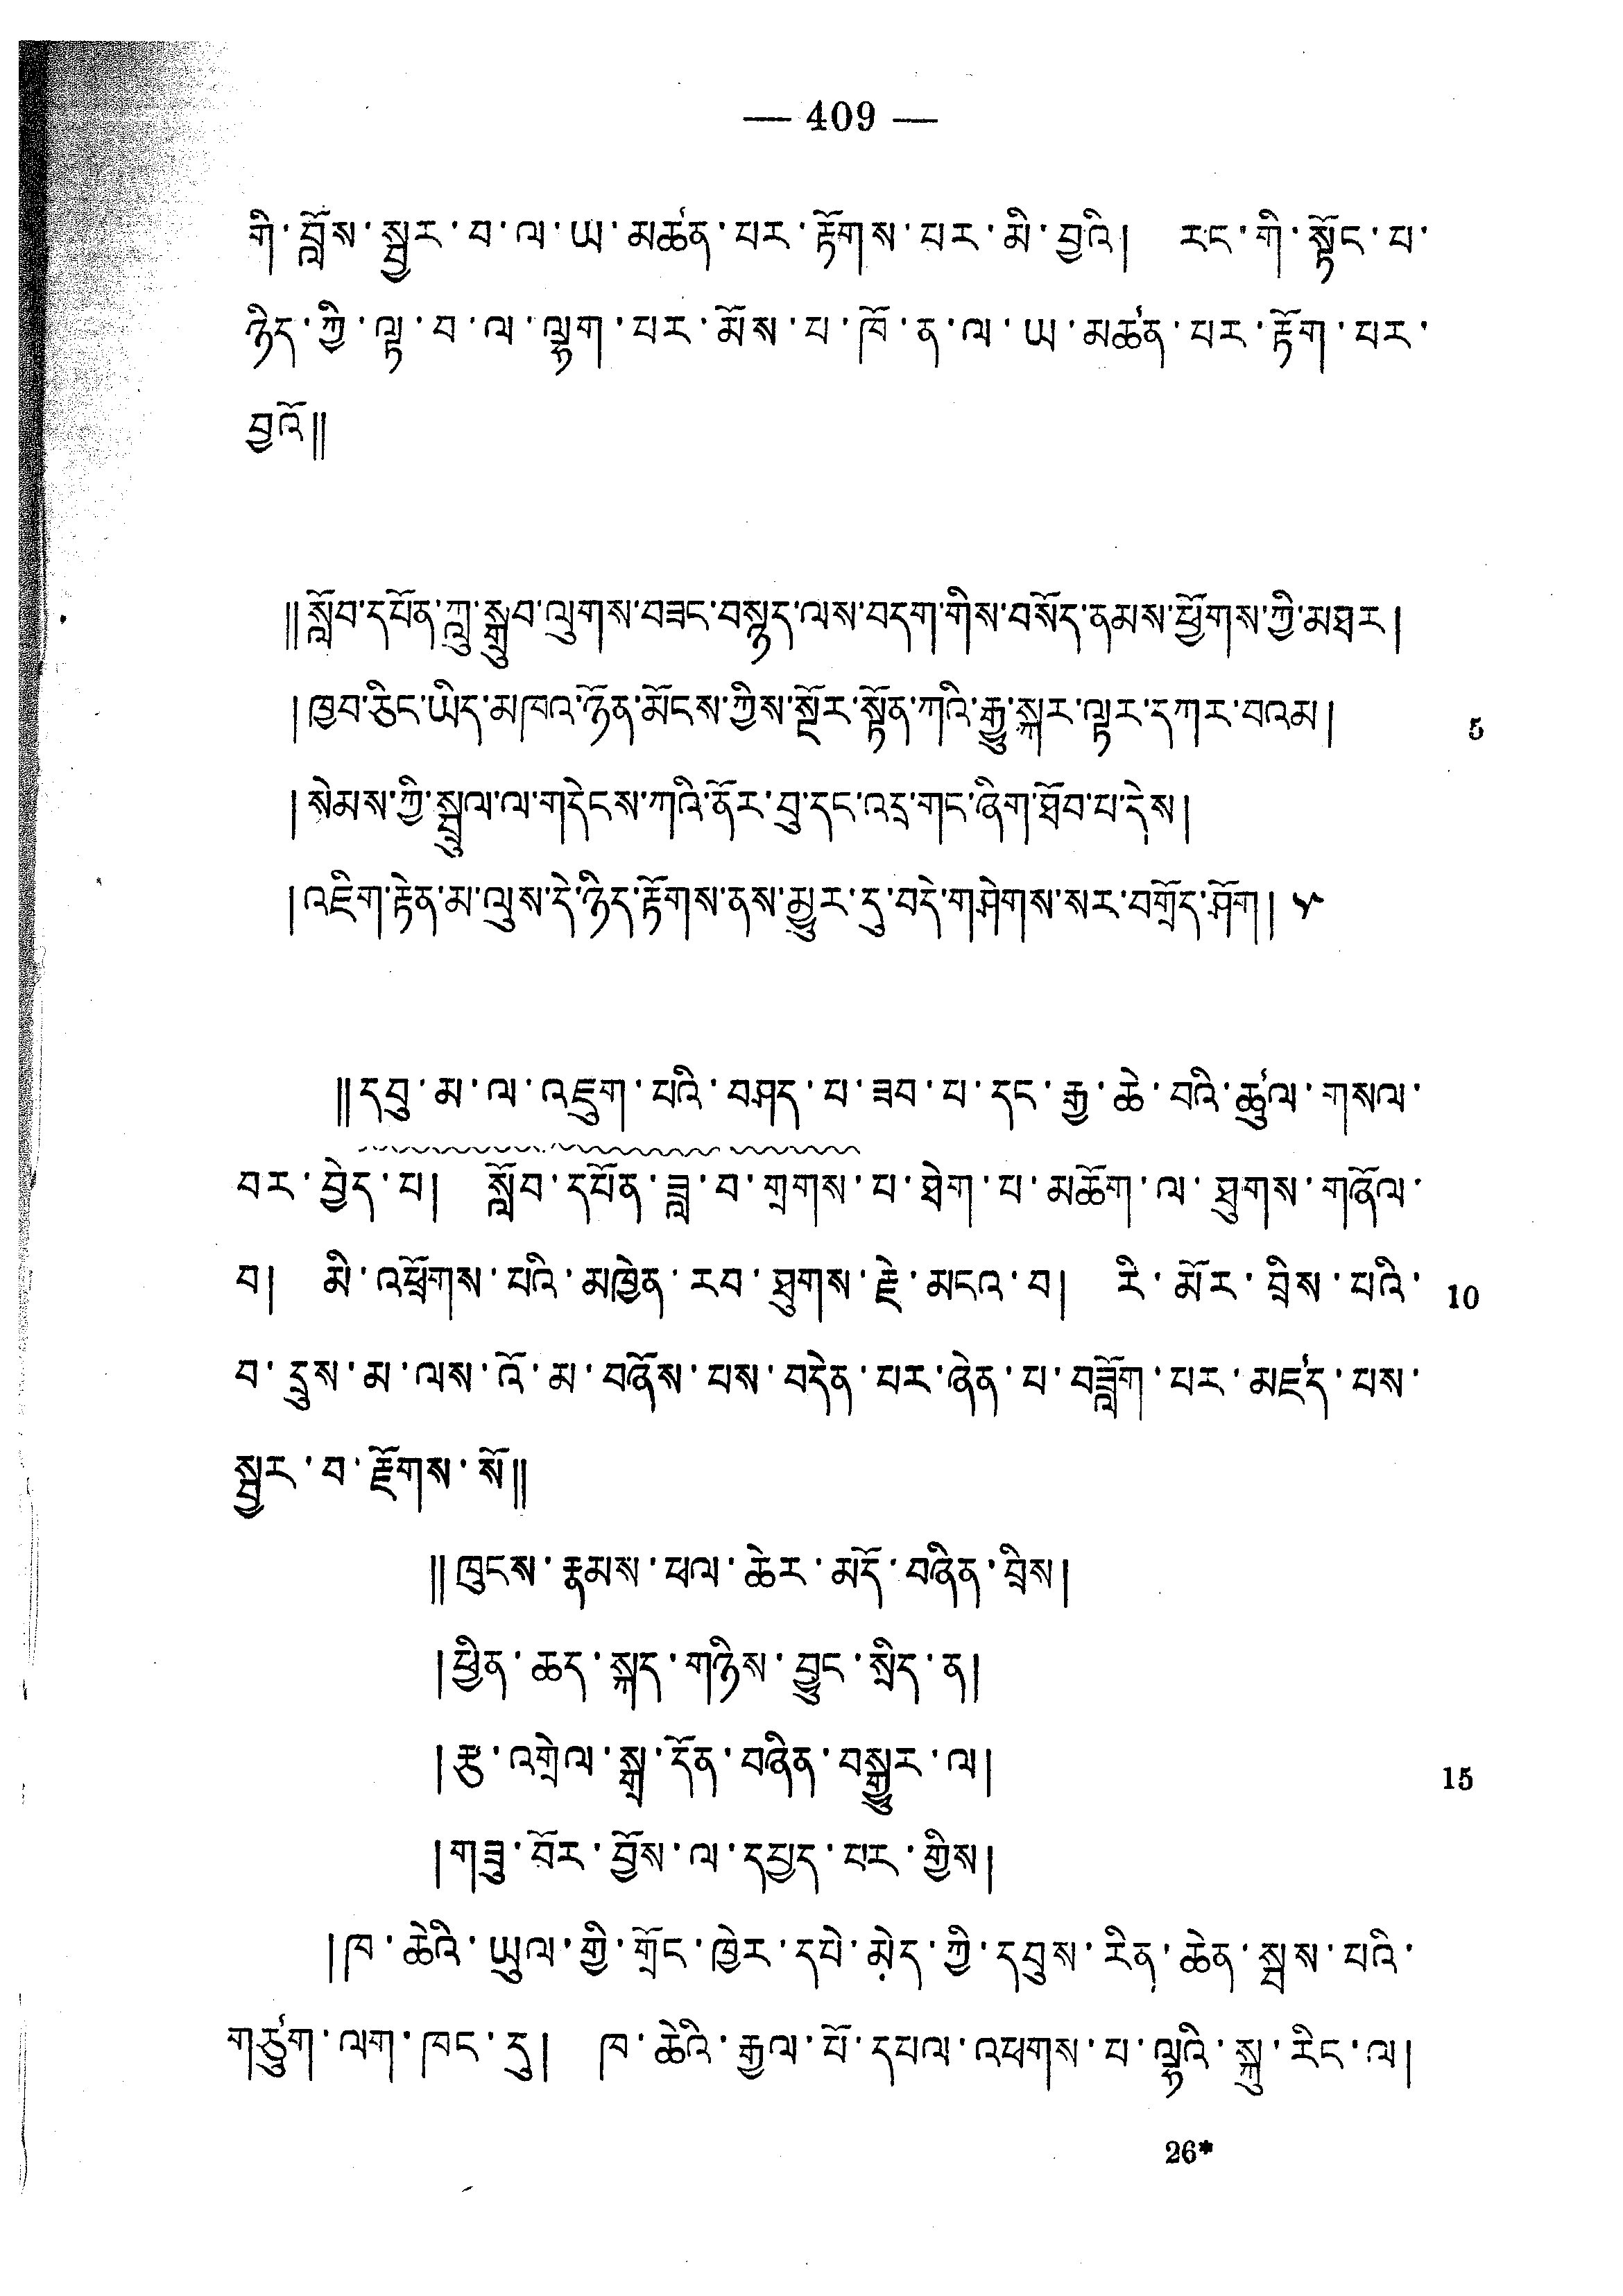 — 409 —
གི་བློས་སྦྱར་བ་ལ་ཡ་མཚན་པར་རྟོགས་པར་མི་བྱའི། རང་གི་སྟོང་པ་
ཉིད་ཀྱི་ལྟ་བ་ལ་ལྷག་པར་མོས་པ་ཁོ་ན་ལ་ཡ་མཚན་པར་རྟོག་པར་
བྱའོ༎
༎སློབ་དཔོན་ཀླུ་སྒྲུབ་ལུགས་བཟང་བསྙད་ལས་བདག་གིས་བསོད་ནམས་ཕྱོགས་ཀྱི་མཐར།
།ཁྱབ་ཅིང་ཡིད་མཁའ་ཉོན་མོངས་ཀྱིས་སྔོར་སྟོན་ཀའི་རྒྱུ་སྐར་ལྟར་དཀར་བའམ།
5
།སེམས་ཀྱི་སྦྲུལ་ལ་གདེངས་ཀའི་ནོར་བུ་དང་འདྲ་གང་ཞིག་ཐོབ་པ་དེས།
།འཇིག་རྟེན་མ་ལུས་དེ་ཉིད་རྟོགས་ནས་མྱུར་དུ་བདེ་གཤེགས་སར་བགྲོད་ཤོག།
༎དབུ་མ་ལ་འཇུག་པའི་བཤད་པ་ཟབ་པ་དང་རྒྱ་ཆེ་བའི་ཚུལ་གསལ་
བར་བྱེད་པ། སློབ་དཔོན་ཟླ་བ་གྲགས་པ་ཐེག་པ་མཆོག་ལ་ཐུགས་གཞོལ་
བ། མི་འཕྲོགས་པའི་མཁྱེན་རབ་ཐུགས་རྗེ་མངའ་བ། རི་མོར་བྲིས་པའི་
10
བ་དྲུས་མ་ལས་འོ་མ་བཞོས་པས་བདེན་པར་ཞེན་པ་བཟློག་པར་མཛད་པས་
སྦྱར་བ་རྫོགས་སོ༎
༎ཁུངས་རྣམས་ཕལ་ཆེར་མདོ་བཞིན་བྲིས།
།ཕྱིན་ཆད་སྐད་གཉིས་བྱུང་སྲིད་ན།
།རྩ་འགྲེལ་སྒྲ་དོན་བཞིན་བསྒྱུར་ལ།
15
།གཟུ་བོར་བྱོས་ལ་དཔྱད་པར་གྱིས།
།ཁ་ཆེའི་ཡུལ་གྱི་གྲོང་ཁྱེར་དཔེ་མེད་ཀྱི་དབུས་རིན་ཆེན་སྦས་པའི་
གཙུག་ལག་ཁང་དུ། ཁ་ཆེའི་རྒྱལ་པོ་དཔལ་འཕགས་པ་ལྷའི་སྐུ་རིང་ལ།
26*